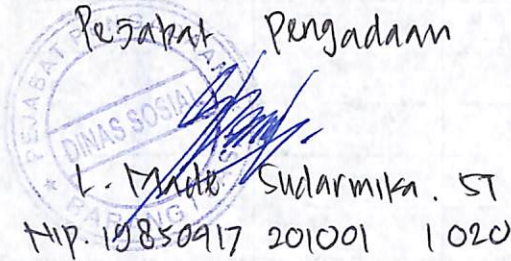 Pejabat Pengadaan
PEJABAT
DINAS SOSIAL
I. Made Sudarmika. ST
NIP. 19850917 201001 1 020